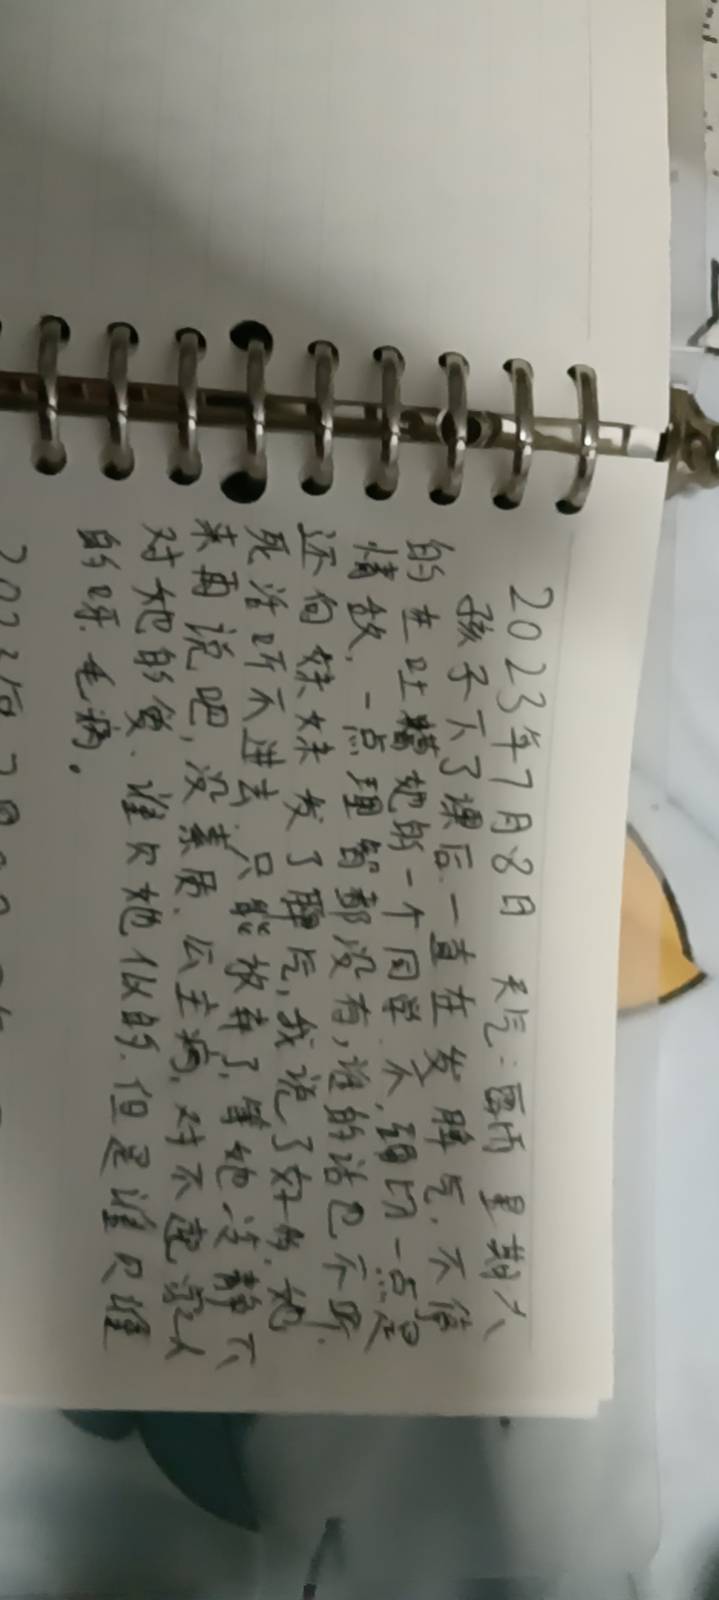 2023年7月8日 天气:雷雨 星期六
孩子下了课后一直在发脾气.不停
的在吐糟她的一个同学.不,确切一点是
情敌,一点理智都没有,谁的话也不听.
还向妹妹发了脾气,我说了好的.她
死活听不进去.只能放弃了,等她冷静下
来再说吧,没素质.公主病.对不起家人
对她的爱.谁欠她似的.但是谁只谁
的呀.毛病。